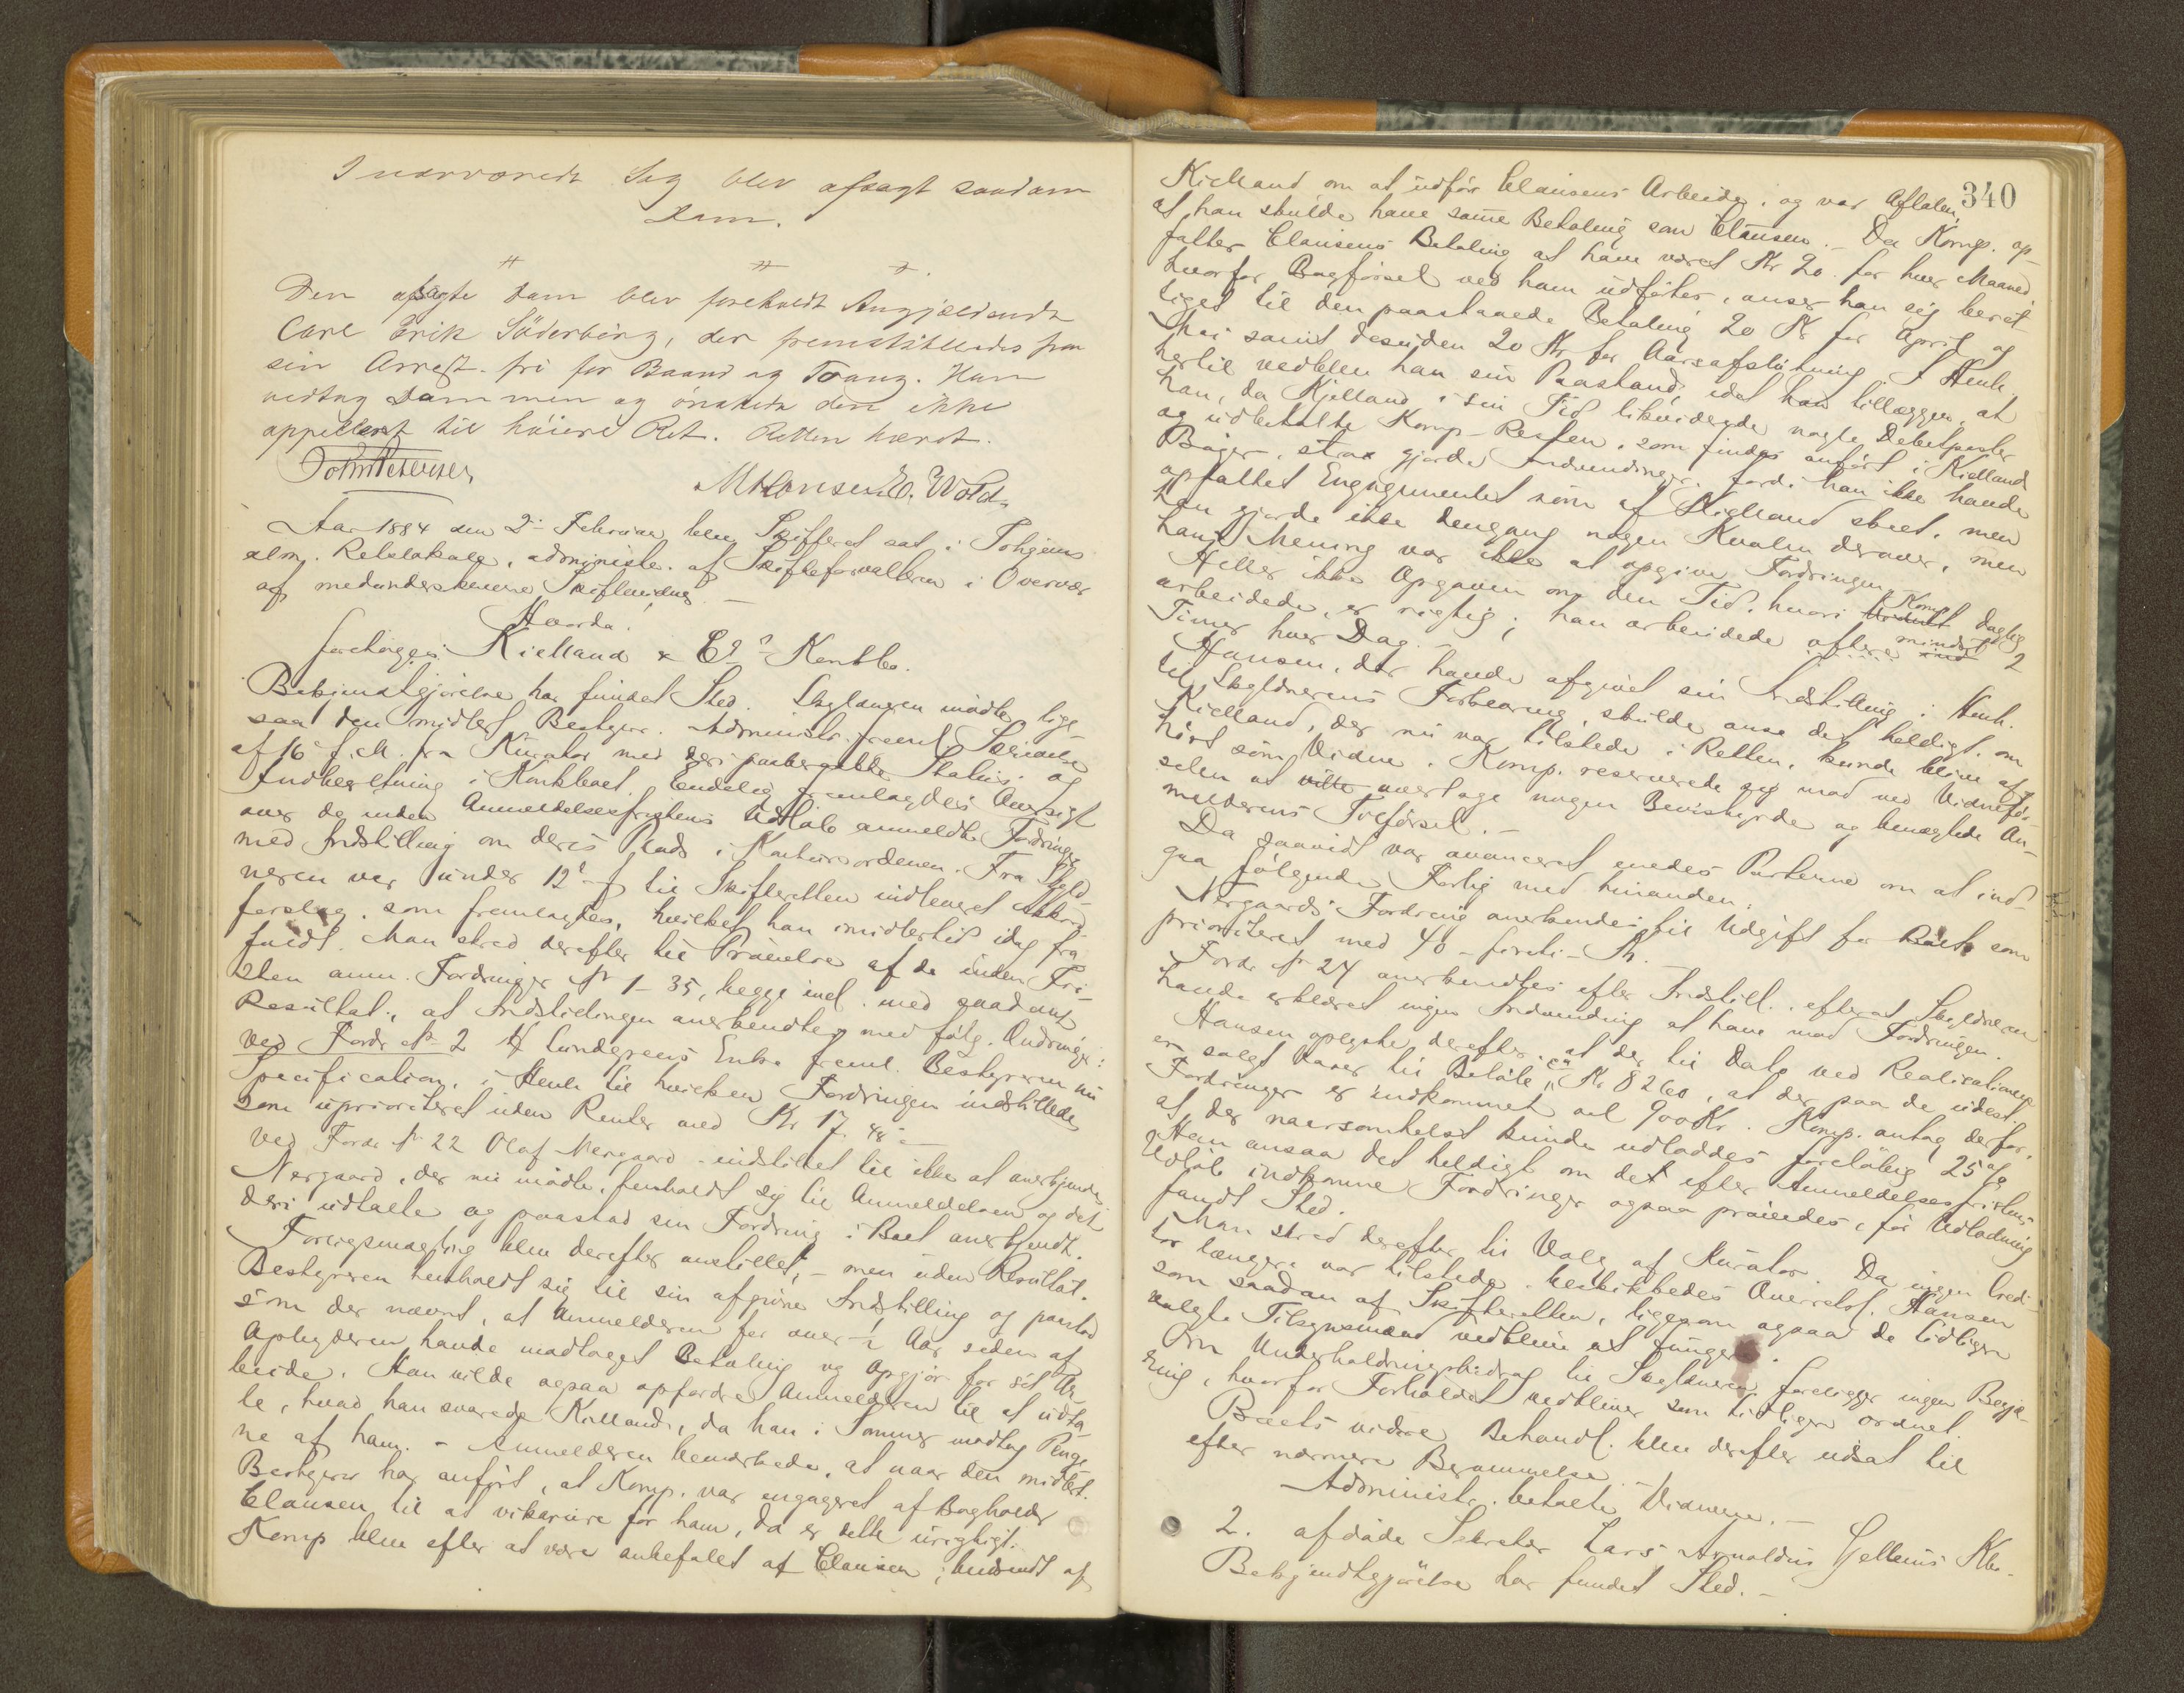 I nærværende Sag blev afsagt saadan
Dom.
# # #.
Den afsagte Dom blev foreholdt Angjældende
Carl Erik Söderberg, der fremstilledes fra
sin Arrest fri for Baand og Tvang. Han
vedtog Dommen og ønskede den ikke
appelleret til høiere Ret. Retten hævet.
John Petersen
M Hansen. O. Wold.
Aar 1884 den 2. Februar blev Skifteret sat i
alm. Retslokale, administr. af Skifteforvalteren i Overvær
af medunderskrevne Skiftevidner.
Hvorda:
foretoges: Kielland & Co's Konkbo.
Bekjendtgjørelse har fundet Sted. Skyldneren mødte, lige-
saa den midlert. Bestyrer. Administr. freml. Skrivelse
af 16 f. M. fra Kurator med deri paaberaabte Status og
Indberetning i Konkboet. Endelig fremlagdes Oversigt
over de inden Anmeldelsesfristens Udløb anmeldte Fordringer
med Indstilling om deres Plads i Konkursordenen. Fra Skyld-
neren var under 12 f. til Skifteretten indleveret Akkord-
forslag, som fremlagdes, hvilket han imidlertid idag fra-
faldt. Man skred derefter til Prøvelse af de inden Fri-
sten anm. Fordringer No 1-35, begge incl. med saadant
Resultat, at Indstillingen anerkjendtes med følg. Ændringer:
Ved Fordr. No 2 Lundgreens Enke freml. Bestyreren nu
Specification, i Henh. til hvilken Fordringen indstilledes
som uprioriteret uden Renter med Kr 17. 48
Ved Fordr. No 22 Olaf Nergaard - indstillet til ikke at anerkjendes
Nergaard, der nu mødte, henholdt sig til Anmeldelsen og det
deri udtalte og paastod sin Fordring i Boet anerkjendt.
Forligsmægling blev derefter anstillet, - men uden Resultat.
Bestyreren henholdt sig til sin afgivne Indstilling og paastod
som der nævnt, at Anmelderen for over ½ Aar siden af
Opbyderen havde modtaget Betaling og Opgjør for sit Ar-
beide. Han vilde ogsaa opfordre Anmelderen til at udta-
le, hvad han svarede Kielland, da han i Sommer modtog Penge-
ne af ham. - Anmelderen bemærkede, at naar den midlert.
Bestyrer har anført, at Komp. var engageret af Bogholder
Clausen til at vikariere for ham, da er dette urigtigt.
Komp blev efter at være anbefalet af Clausen, anmodt af
340
Kielland om at udføre Clausens Arbeide, og var Aftalen,
at han skulde have samme Betaling som Clausen. - Da Komp. op-
fatter Clausens Betaling at have været Kr 20 for hver Maaned
hvorfor Bogførsel ved ham udførtes, anser han sig beret-
tiget til den paastaaede Betaling 20 Kr for April og
Mai samt desuden 20 Kr for Aarsafslutning. I Henh.
hertil vedblev han sin Paastand, idet han tillægger, at
han, da Kjelland i sin Tid likviderede nogle Debetposter
og udbetalte Komp. Resten, som findes anført i Kielland
Bøger, strax gjorde Indvendinger, fordi han ikke havde
opfattet Engagementet som af Kielland skeet, men
han gjorde ikke dengang nogen Kvalm derover, men
hans Mening var ikke at opgive Fordringen.
Heller ikke Opgaven om den Tid, hvori Komp. daglig
arbeidede, er rigtig; han arbeidede oftere mindst 2
Timer hver Dag. -
Hansen, der havde afgivet sin Indstilling i Henh.
til Skyldnerens Forklaring, skulde anse det heldigt, om
Kielland, der nu var tilstede i Retten, kunde blive af-
hørt som Vidne. Komp. reserverede sig mod ved Vidneførs-
selen at overtage nogen Bevisbyrde og benegtede An-
melderens Tilførsel. -
Da saavidt var avanceret enedes Parterne om at ind-
gaa følgende Forlig med hinanden:
Nergaards Fordring anerkjendes til Udgift for Boet som
prioriteret med 40 - firti - Kr.
Fordr. No 24 anerkjendtes efter Indstill., efterat Skyldneren
havde erklæret ingen Indvending at have mod Fordringen.
Hansen oplyste derefter, at der til Dato ved Realisationen
er solgt Varer til Beløb ca Kr 8260, at der paa de udest.
Fordringer er indkommet vel 900 Kr. Komp. antog derfor,
at der naarsomhelst kunde udloddes foreløbig 25 %.
Han ansaa det heldigt om det efter Anmeldelsesfristens
Udløb indkomne Fordringer ogsaa prøvedes, før Udlodning
fandt Sted.
Man skred derefter til Valg af Kurator. Da ingen Credi-
tor længere var tilstede, beskikkedes Overretssf. Hansen
som saadan af Skifteretten, ligesom ogsaa de tidligere
valgte Tilsynsmænd vedblive at fungere.
Om Underholdningsbidrag til Skyldneren foreligger ingen Begjæ-
ring, hvorfor Forholdet vedbliver som tidligere ordnet.
Boets videre Behandl. blev derefter udsat til
efter nærmere Berammelse. -
Administr. betalte Vidnerne. -
2. afdøde Sekretær Lars Arnoldus Gelleius Kbo.
Bekjendtgjørelse har fundet Sted. -